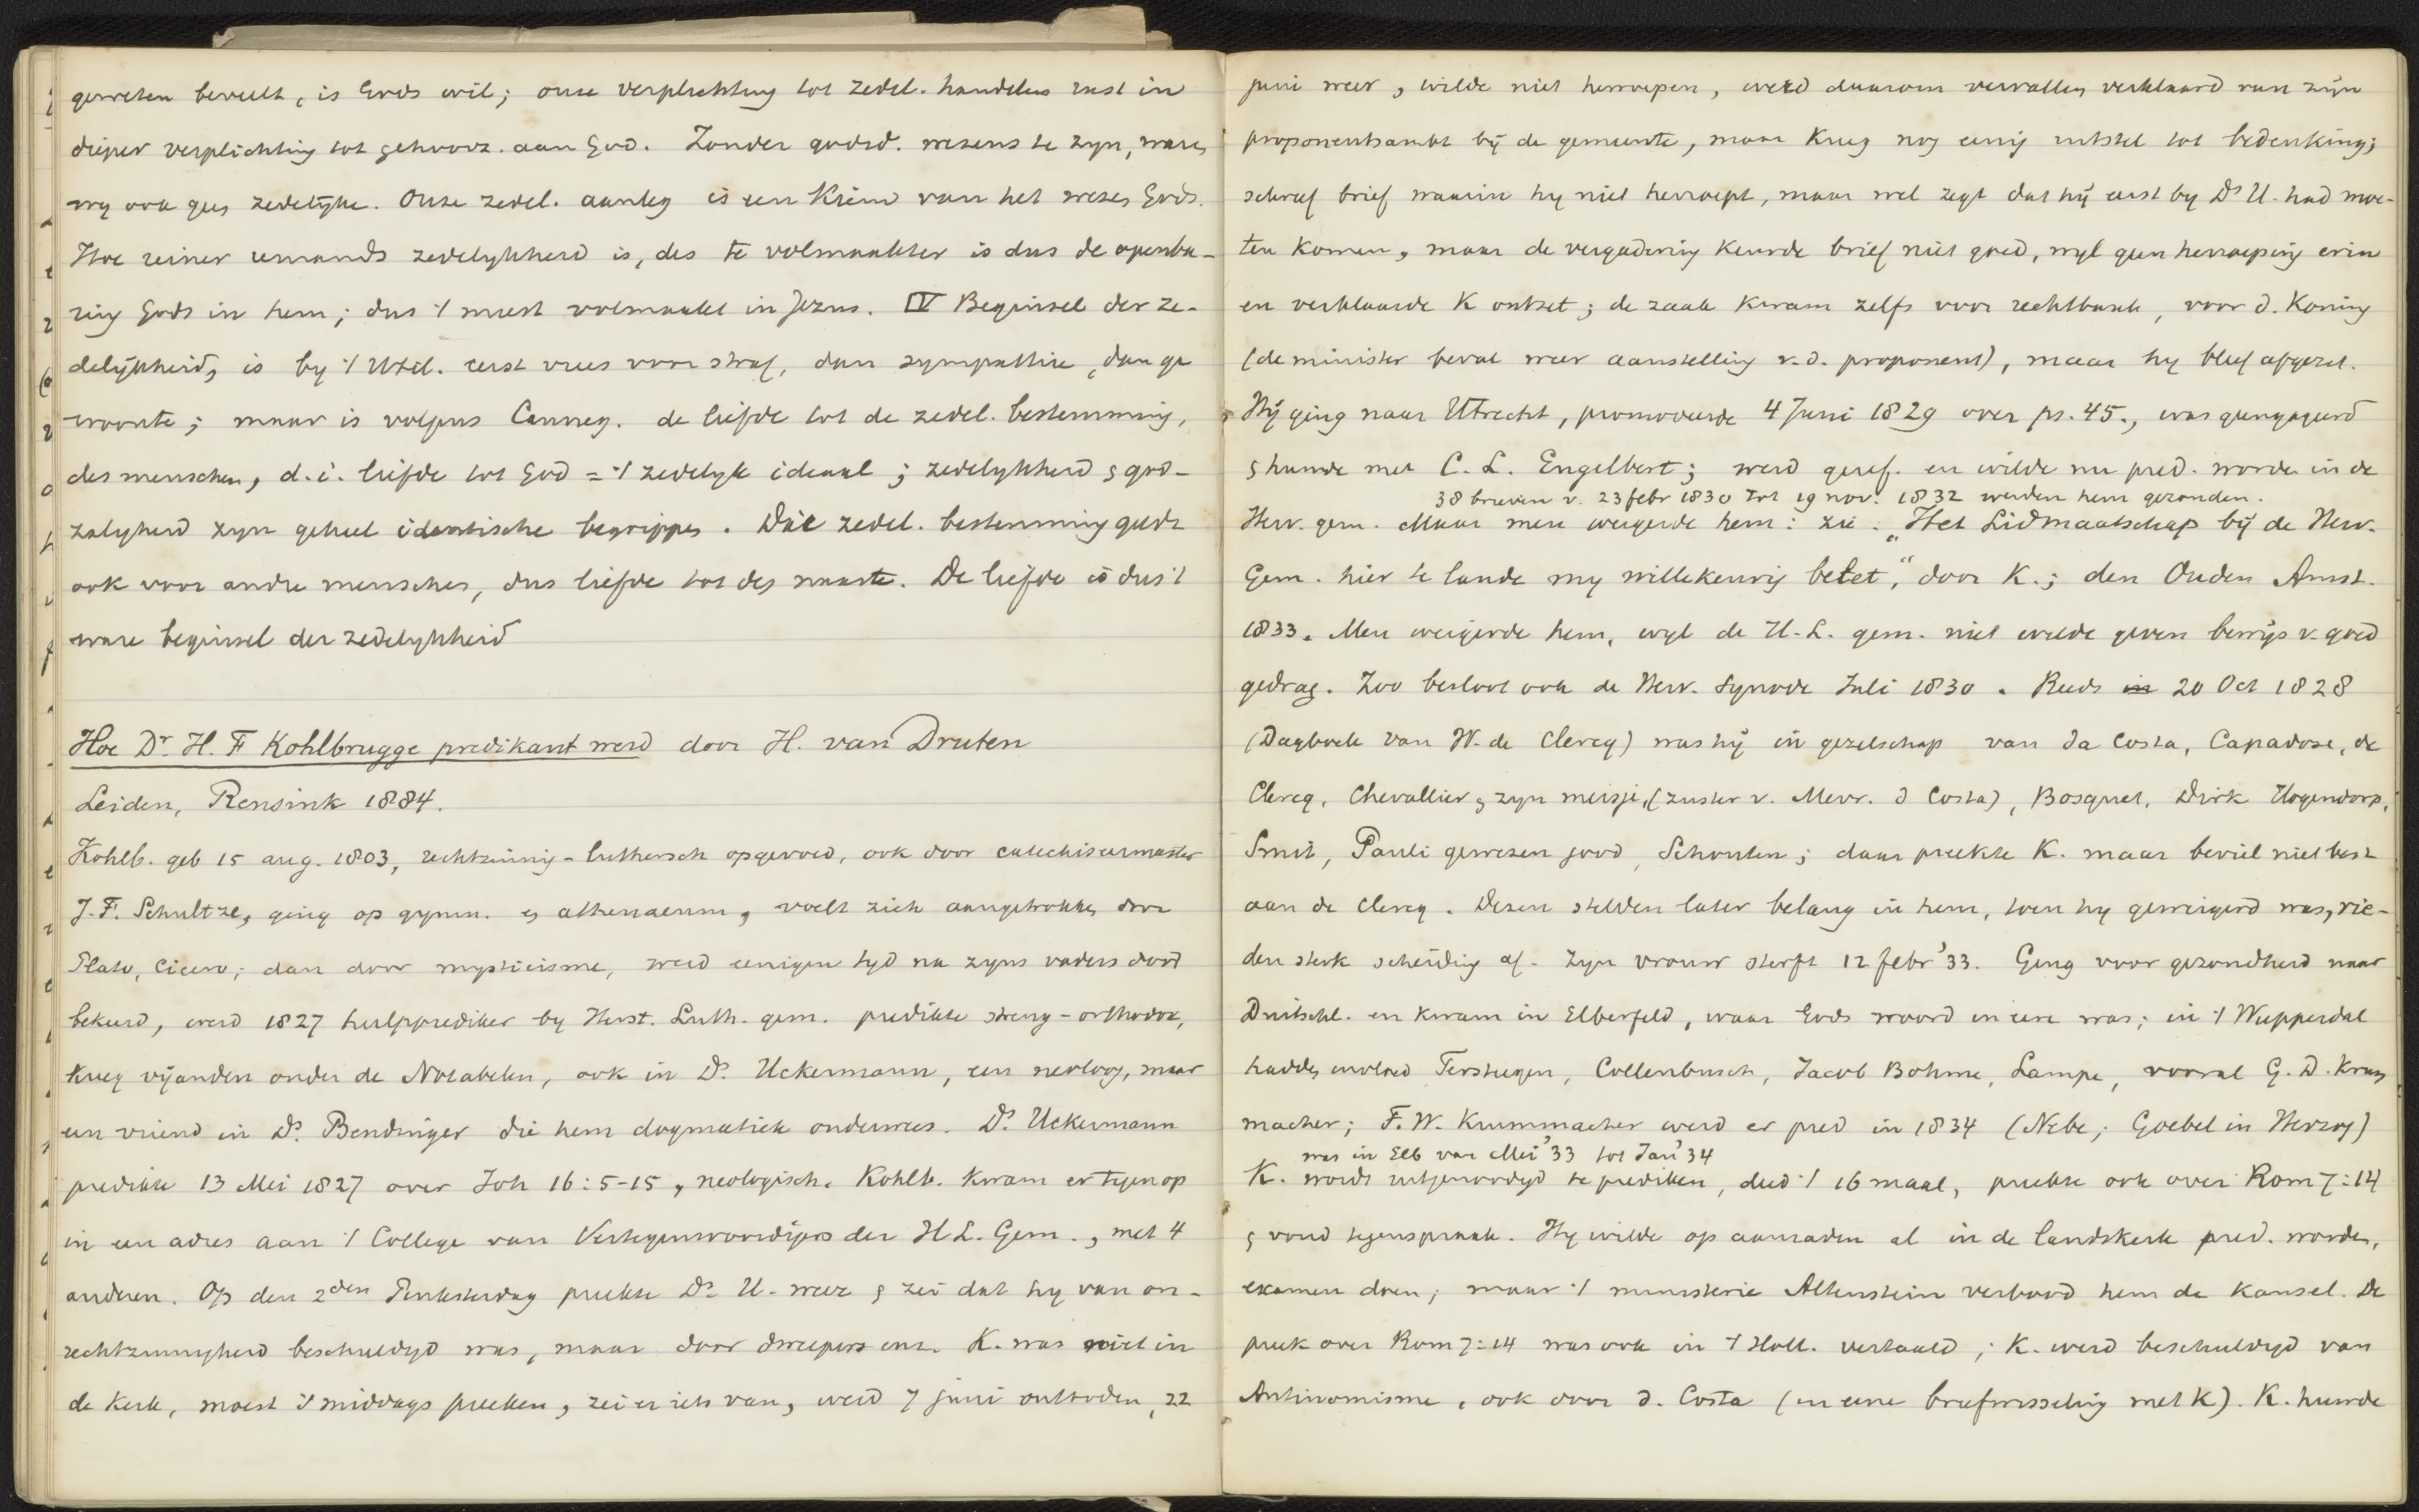 geweten beveelt, is Gods wil; onze verplichting tot zedel. handelen rust in
dieper verplichting tot gehoorz. aan God. Zonder godsd. wezens te zyn, waren
wy ook geen zedelijke. Onze zedel. aanleg is een Kiem van het wezen Gods.
Hoe reiner iemands zedelykheid is, des te volmaakter is dus de openba-
ring Gods in hem; dus 't meest volmaakt in Jezus. IV Beginsel der ze-
delijkheid, is by 't Util. eerst vrees voor straf, dan sympathie, dan ge
woonte; maar is volgens Canneg. de liefde tot de zedel. bestemming,
des menschen, d.i. liefde tot God = 't zedelyk ideaal; zedelykheid & god-
zaligheid zyn geheel identische begrippen. Die zedel. bestemming geldt
ook voor andre menschen, dus liefde tot den naaste. De liefde is dus 't
ware beginsel der zedelykheid
Hoe Dr. H. F Kohlbrugge predikant werd door H. van Druten
Leiden, Rensink 1884.
Kohlb. geb 15 aug. 1803, rechtzinnig-luthersch opgevoed, ook door catechiseermeester
J. F. Schultze, ging op gymn. en athenaeum, voelt zich aangetrokken door
Plato, Cicero; dan door mysticisme, werd eenigen tyd na zyns vaders dood
bekeerd, werd 1827 hulpprediker by Herst. Luth. gem. predikte streng-orthodox,
kreeg vijanden onder de Notabelen, ook in Ds. Uckermann, een neoloog, maar
een vriend in Ds. Bendinger die hem dogmatiek onderwees. Ds. Uckermann
predikte 13 Mei 1827 over Joh 16:5-15, neologisch. Kohlb. kwam er tegen op
in een adres aan 't College van Vertegenwoordigers der H L. Gem., met 4
anderen. Op den 2den Pinksterdag preekte Ds. U. weer & zei dat hy van on-
rechtzinnigheid beschuldigd was, maar door dweepers enz. K. was niet in
de Kerk, moest 's middags preeken, zei er iets van, werd 7 juni ontboden, 22
juni weer, wilde niet herroepen, werd daarom vervallen verklaard van zijn
proponentsambt bij de gemeente, maar kreeg nog eenig uitstel tot bedenking;
schreef brief waarin hy niet herroept, maar wel zegt dat hij eerst by Ds U. had moe-
ten komen, maar de vergadering keurde brief niet goed, wyl geen herroeping erin
en verklaarde K ontzet; de zaak kwam zelfs voor rechtbank, voor d. Koning
(de minister beval weer aanstelling v.d. proponent), maar hy bleef afgezet.
Hij ging naar Utrecht, promoveerde 4 Juni 1829 over ps. 45., was geengageerd
& huwde met C. L. Engelbert; werd geref. en wilde nu pred. worden in de
38 brieven v. 23 febr 1830 tot 19 nov. 1832 werden hem gezonden.
Herv. gem. Maar men weigerde hem: zie: „Het Lidmaatschap bij de Herv.
Gem. hier te lande my willekeurig belet", door K.; den Ouden Amst.
1833. Men weigerde hem, wyl de H.L. gem. niet wilde geven bewijs v. goed
gedrag. Zoo besloot ook de Herv. Synode Juli 1830. Reeds in 20 Oct 1828
(Dagboek van W. de Clercq) was hij in gezelschap van da Costa, Capadose, de
Clercq, Chevallier & zyn meisje, (zuster v. Mevr. d Costa), Bosquet, Dirk Hogendorp,
Smit, Pauli gewezen jood, Schouten; daar preekte K. maar beviel niet best
aan de Clercq. Dezen stelden later belang in hem, toen hy geweigerd was, rie-
den sterk scheiding af. Zyn vrouw sterft 12 febr '33. Ging voor gezondheid naar
Duitschl. en kwam in Elberfeld, waar Gods woord in eere was; in 't Wupperdal
hadden invloed Tersteegen, Collenbusch, Jacob Bohme, Lampe, vooral G. D. Krum
macher; F. W. Krummacher werd er pred in 1834 (Nebe; Goebel in Herzog)
was in Elb van Mei '33 tot Jan '34
K. wordt uitgenoodigd te prediken, deed 't 16 maal, preekte ook over Rom 7:14
& vond tegenspraak. Hy wilde op aanraden al in de landskerk pred. worden,
examen doen; maar 't ministerie Altenstein verbood hem de kansel. De
preek over Rom 7:14 was ook in 't Holl. vertaald; K. werd beschuldigd van
Antinomisme, ook door d. Costa (in eene briefwisseling met K). K. huwde